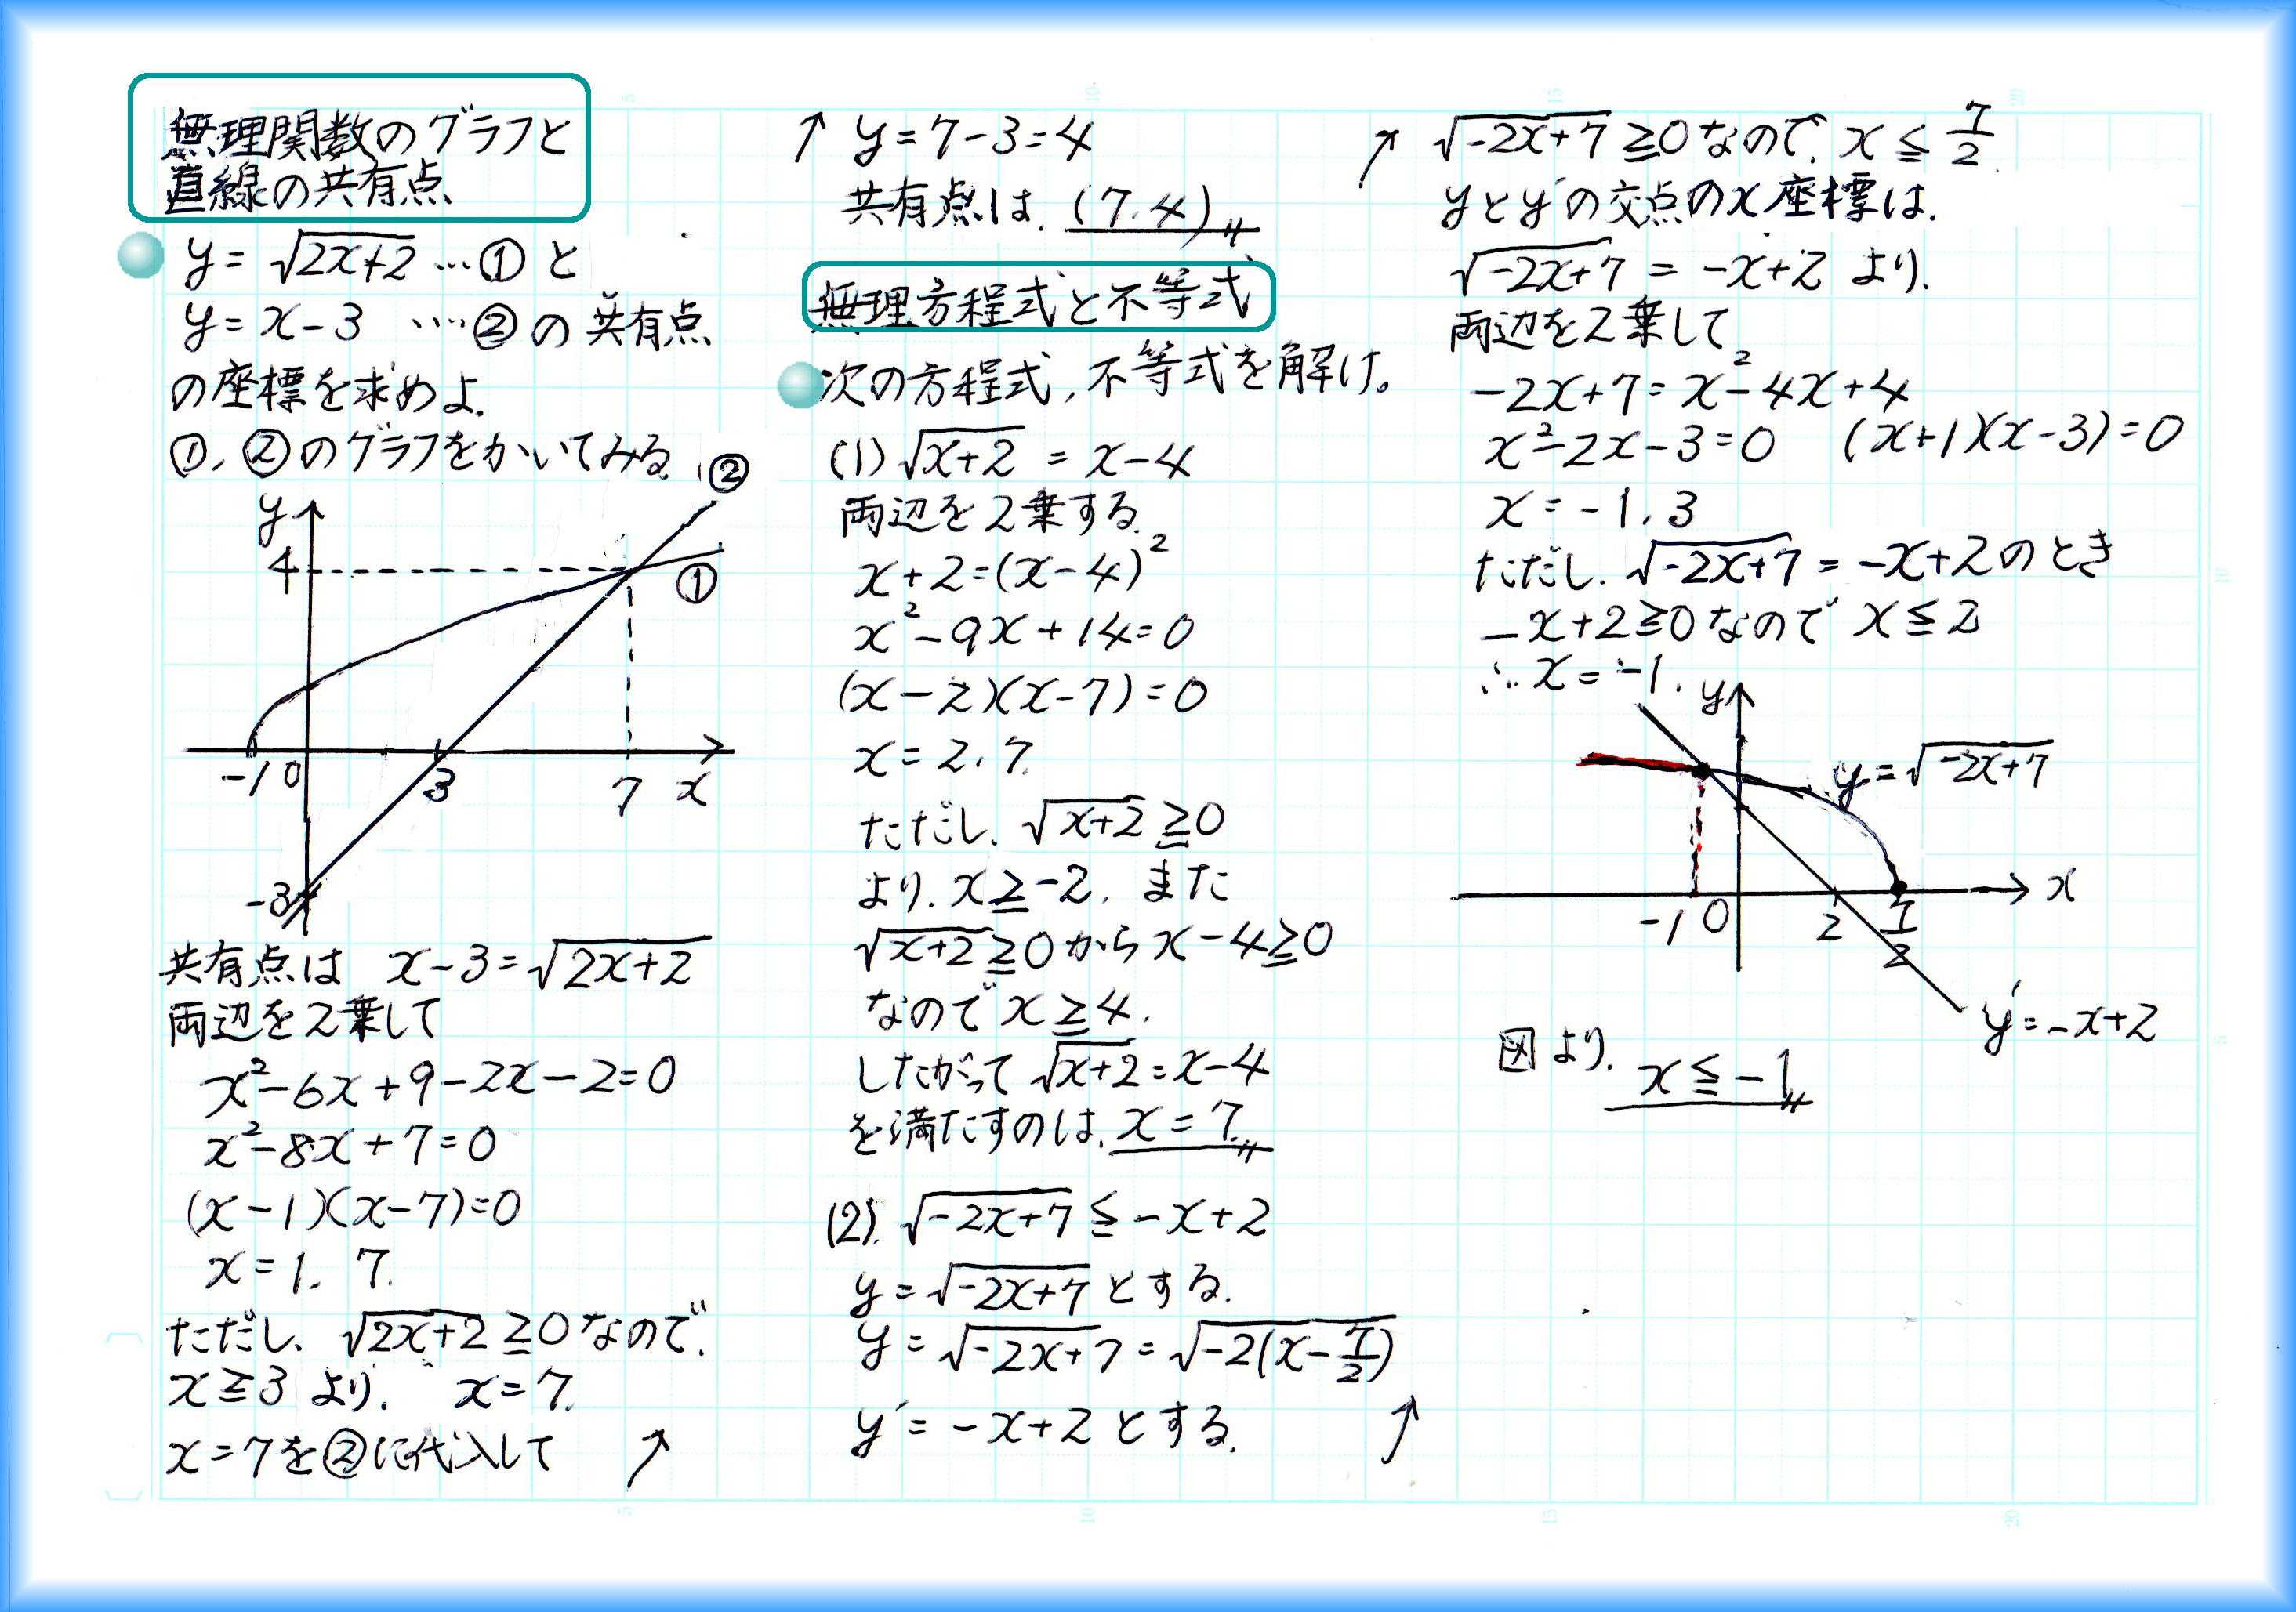 無理関数のグラフと
直線の共有点
y = √(2x+2) …① と
y = x-3 …② の共有点
の座標を求めよ.
①, ②のグラフをかいてみる.
②
y
4
①
-1 0 3 7 x
-3
共有点は x-3=√(2x+2)
両辺を2乗して
x²-6x+9-2x-2=0
x²-8x+7=0
(x-1)(x-7)=0
x=1, 7.
ただし、√(2x+2)≧0なので.
x≧3 より. x=7.
x=7を②に代入して ↗
↗ y=7-3=4
共有点は. (7.4)〃
無理方程式と不等式
次の方程式,不等式を解け。
(1) √(x+2) = x-4
両辺を2乗する.
x+2=(x-4)²
x²-9x+14=0
(x-2)(x-7)=0
x=2.7.
ただし、√(x+2)≧0
より. x≧-2. また
√(x+2)≧0からx-4≧0
なのでx≧4.
したがって√(x+2)=x-4
を満たすのは. x=7.〃
(2). √(-2x+7)≦-x+2
y=√(-2x+7)とする.
y=√(-2x+7)=√(-2(x-7/2))
y′=-x+2とする. ↗
↗ √(-2x+7)≧0なので. x≦7/2
yとy′の交点のx座標は.
√(-2x+7) = -x+2 より.
両辺を2乗して
-2x+7=x²-4x+4
x²-2x-3=0 (x+1)(x-3)=0
x=-1.3
ただし. √(-2x+7)=-x+2のとき
-x+2≧0なので x≦2
∴x=-1.
y
y=√(-2x+7)
x
-1 0 2 7/2
y′=-x+2
図より. x≦-1〃